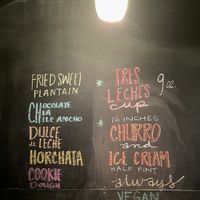 FRIED SWEET
PLANTAIN
CHOCOLATE
CHILA
ISLE ANCHO
DULCE
de LECHE
HORCHATA
COOKIE
DOUGH
* TRES 9 oz.
LECHES
cup
* 16 INCHES
CHURRO
and
ICE CREAM
HALF PINT
always
VEGAN